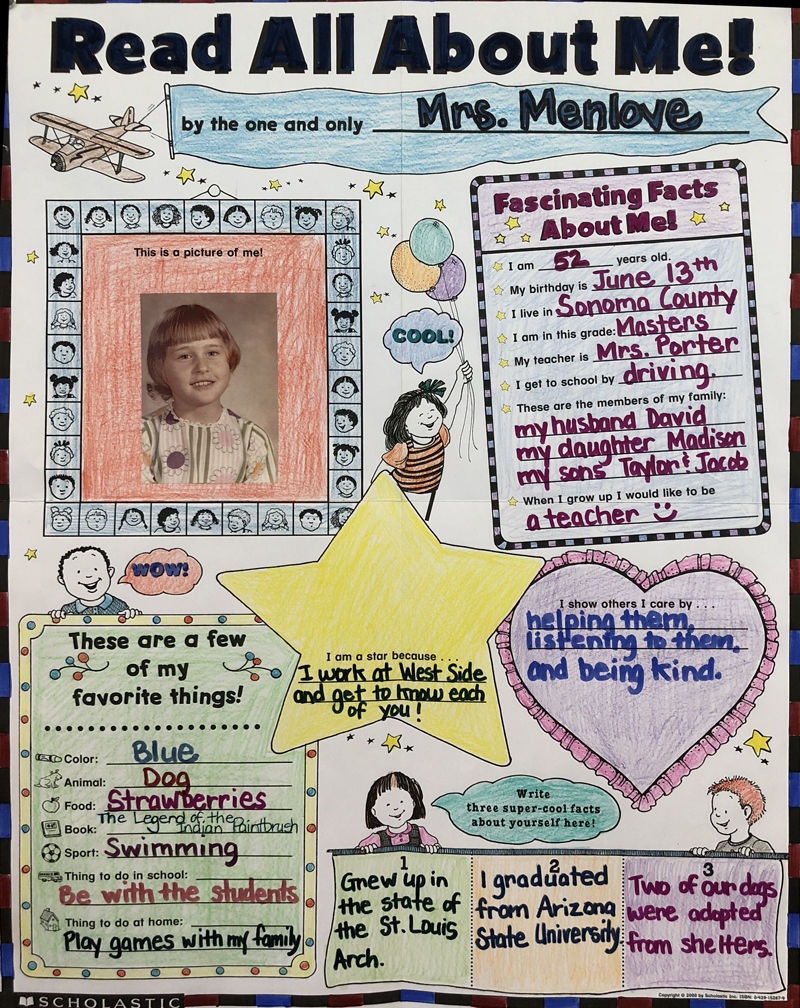 Read All About Me!
by the one and only Mrs. Menlove
This is a picture of me!
COOL!
Fascinating Facts
About Me!
I am 52 years old.
My birthday is June 13th
I live in Sonoma County
I am in this grade: Masters
My teacher is Mrs. Porter
I get to school by driving.
These are the members of my family:
my husband David
my daughter Madison
my sons Taylor & Jacob
When I grow up I would like to be
a teacher
WOW!
These are a few
of my
favorite things!
Color: Blue
Animal: Dog
Food: Strawberries
Book: The Legend of the
Indian Paintbrush
Sport: Swimming
Thing to do in school:
Be with the students
Thing to do at home:
Play games with my family
I am a star because . . .
I work at West Side
and get to know each
of you!
I show others I care by . . .
helping them,
listening to them,
and being kind.
Write
three super-cool facts
about yourself here!
1
Grew up in
the state of
the St. Louis
Arch.
2
I graduated
from Arizona
State University
3
Two of our dogs
were adopted
from shelters.
SCHOLASTIC
Copyright © 2000 by Scholastic Inc. ISBN: 0-439-15287-9